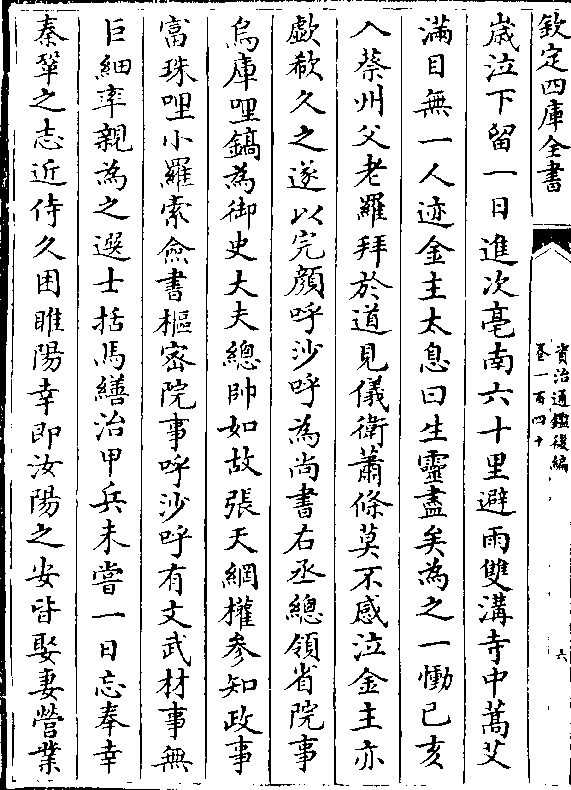 欽定四庫全書
資治通鑑後編
卷一百四十
六
歲泣下留一日進次亳南六十里避雨雙溝寺中蒿艾
滿目無一人迹金主太息曰生靈盡矣為之一慟已亥
入蔡州父老羅拜於道見儀衛蕭條莫不感泣金主亦
歔欷久之遂以完顔呼沙呼為尚書右丞總領省院事
烏庫哩鎬為御史大夫總帥如故張天綱權參知政事
富珠哩小羅索僉書樞密院事呼沙呼有文武材事無
巨細率親為之選士括馬繕治甲兵未嘗一日忘奉幸
秦鞏之志近侍久困睢陽幸即汝陽之安皆娶妻營業